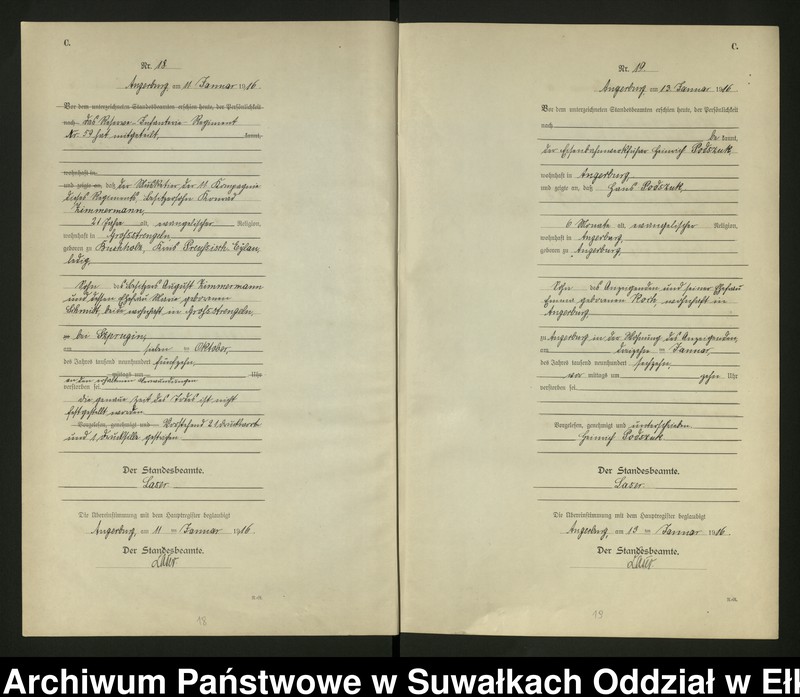 C.
Nr. 18
Angerburg am 11 Januar 1916
Vor dem unterzeichneten Standesbeamten erschien heute, der Persönlichkeit
nach das Reserve-Infanterie-Regiment
Nr. 59 hat mitgeteilt, kannt,
wohnhaft in
und zeigte an, daß der Musketier der 11 Kompagnie
dieses Regiments, Besitzersohn Konrad
Zimmermann,
21 Jahre alt, evangelischer Religion,
wohnhaft in Großstrengeln,
geboren zu Buchholz, Kreis Preußisch Eylau,
ledig,
Sohn des Besitzers August Zimmermann
und dessen Ehefrau Marie geborenen
Schmidt, beide wohnhaft in Großstrengeln,
bei
am ten Oktober,
des Jahres tausend neunhundert fünfzehn,
mittags um Uhr
an den erhaltenen Verwundungen
verstorben sei
die genaue Zeit des Todes ist nicht
festgestellt worden
Vorgelesen, genehmigt und Vorstehend 21 Druckworte
und gestrichen
Der Standesbeamte.
Laser
Die Übereinstimmung mit dem Hauptregister beglaubigt
Angerburg, am 11 ten Januar 1916.
Der Standesbeamte.
Laser
18
C.
Nr. 19
Angerburg am 13 Januar 1916
Vor dem unterzeichneten Standesbeamten erschien heute, der Persönlichkeit
nach
be kannt,
der Heinrich Podszuk,
wohnhaft in Angerburg,
und zeigte an, daß Hans Podszuk,
6 Monate alt, evangelischer Religion,
wohnhaft in Angerburg,
geboren zu Angerburg,
Sohn des Anzeigenden und seiner Ehefrau
Emma geborenen Koch, wohnhaft in
Angerburg
zu Angerburg in der Wohnung des Anzeigenden,
am dreizehn ten Januar
des Jahres tausend neunhundert sechzehn,
vor mittags um zehn Uhr
verstorben sei
Vorgelesen, genehmigt und unterschrieben
Heinrich Podszuk
Der Standesbeamte.
Laser
Die Übereinstimmung mit dem Hauptregister beglaubigt
Angerburg, am 13 ten Januar 1916.
Der Standesbeamte.
Laser
19
Archiwum Państwowe w Suwałkach Oddział w Ełk